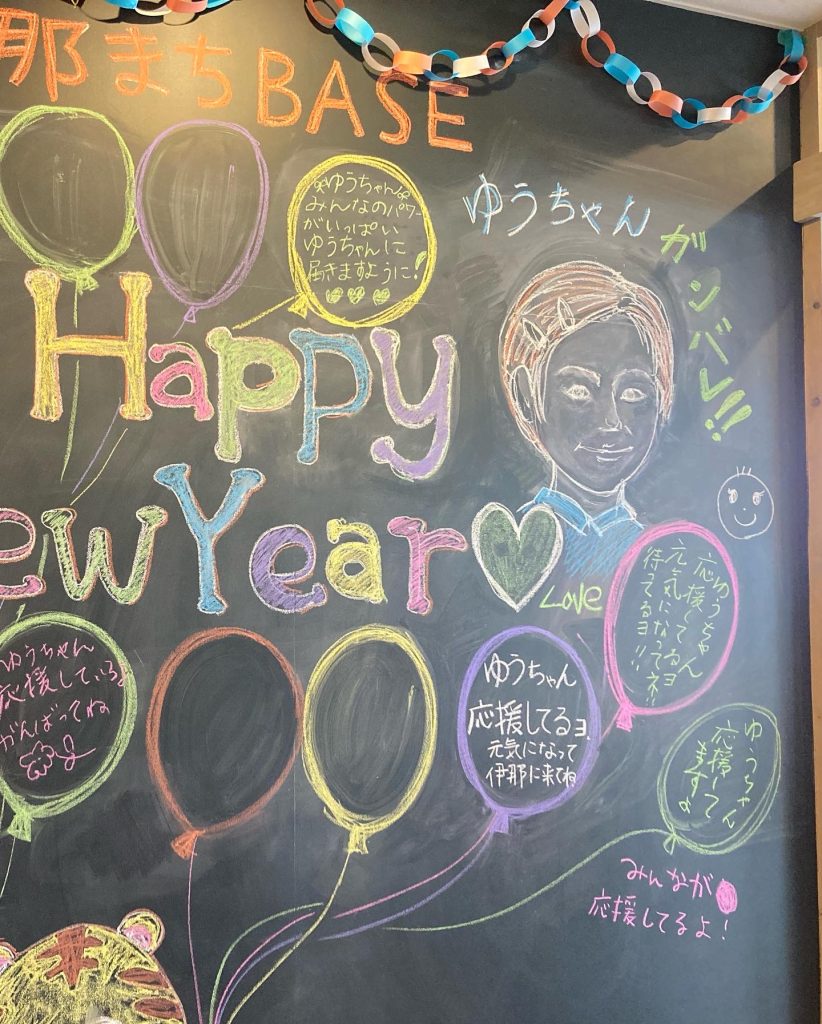 那まちBASE
ゆうちゃん
みんなのパワー
がいっぱい
ゆうちゃんに
届きますように!
ゆうちゃん
ガンバレ!!
Happy
ew Year
Love
ゆうちゃん
応援してるヨ
元気になってネ!!
待ってるヨ!!
ゆうちゃん
応援している
がんばってね
ゆうちゃん
応援してるョ、
元気になって
伊那に来てね
ゆうちゃん
応援して
ますよ
みんなが
応援してるよ!